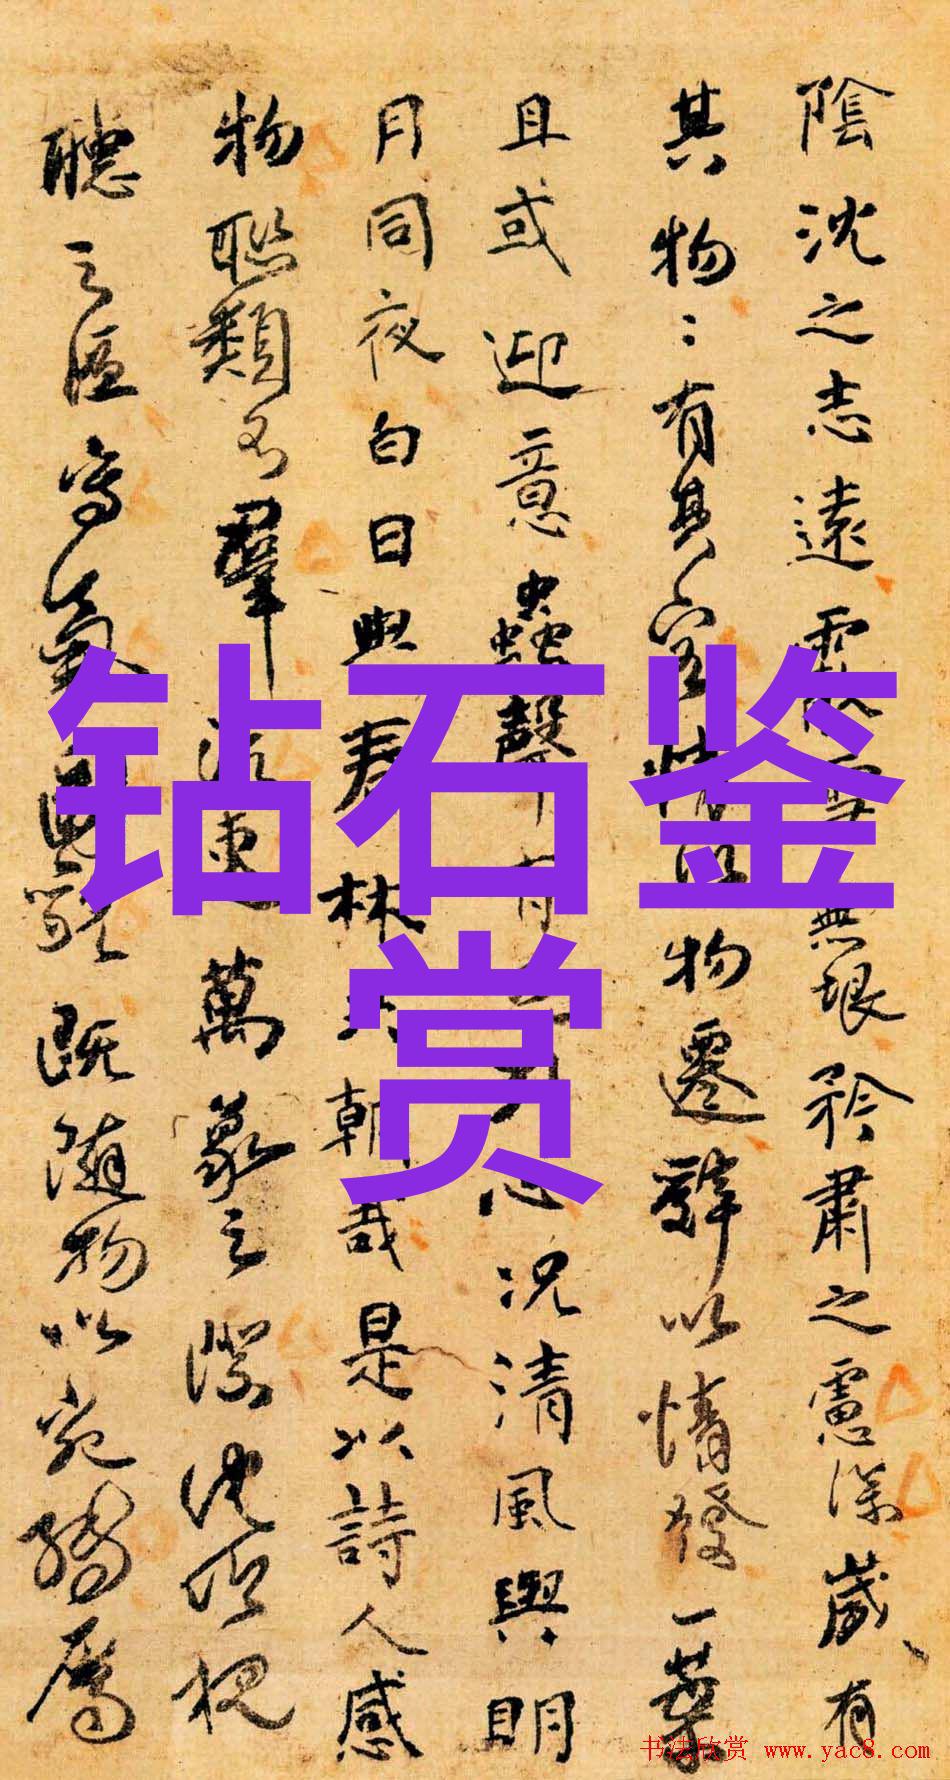 陰沈之志遠霰雪無垠矜肅之慮深歲有
其物〻有其容情以物遷辭以情發一葉
且或迎意蟲聲有心況清風與明
月同夜白日與春林共朝哉是以詩人感
物聯類不流連萬象之際沈吟視
聽之區寫氣圖貌既隨物以宛轉屬
钻石鉴
赏
书法欣赏 www.yac8.com